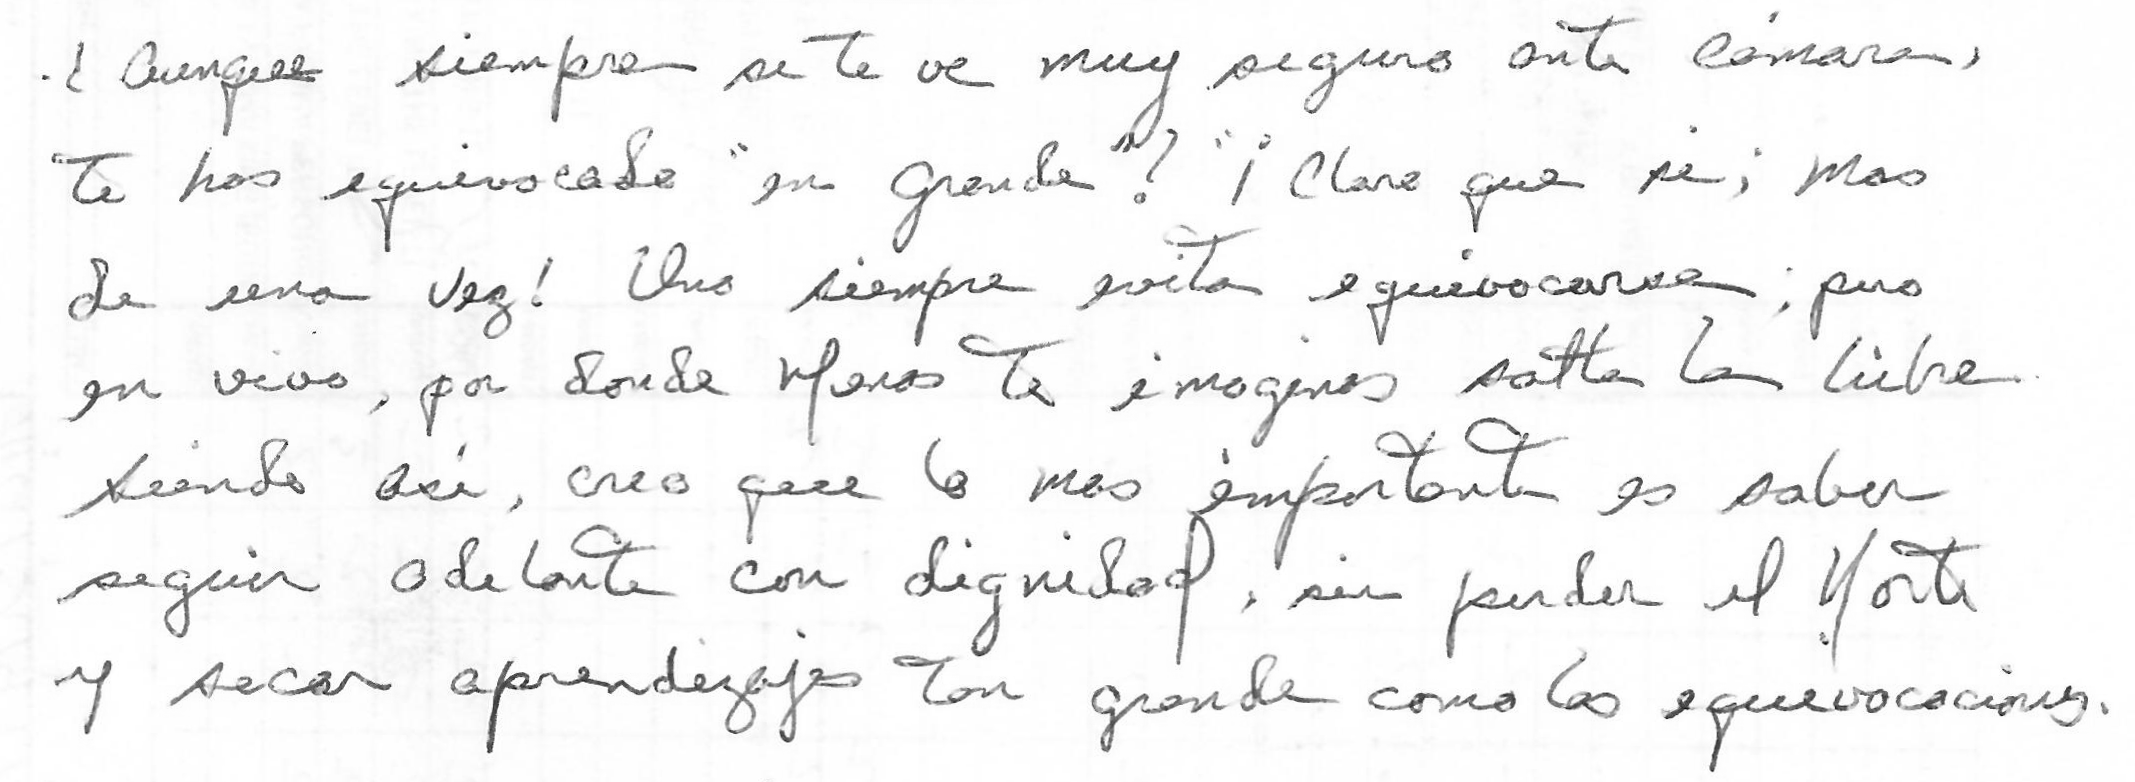 ¿Aunque siempre se te ve muy seguro ante cámara,
te has equivocado "en grande"? "¡Claro que sí; mas
de una vez! Uno siempre evita equivocarse; pero
en vivo, por donde menos te imaginas salta la liebre
siendo así, creo que lo mas importante es saber
seguir adelante con dignidad, sin perder el Norte
y sacar aprendizajes tan grande como las equivocaciones.